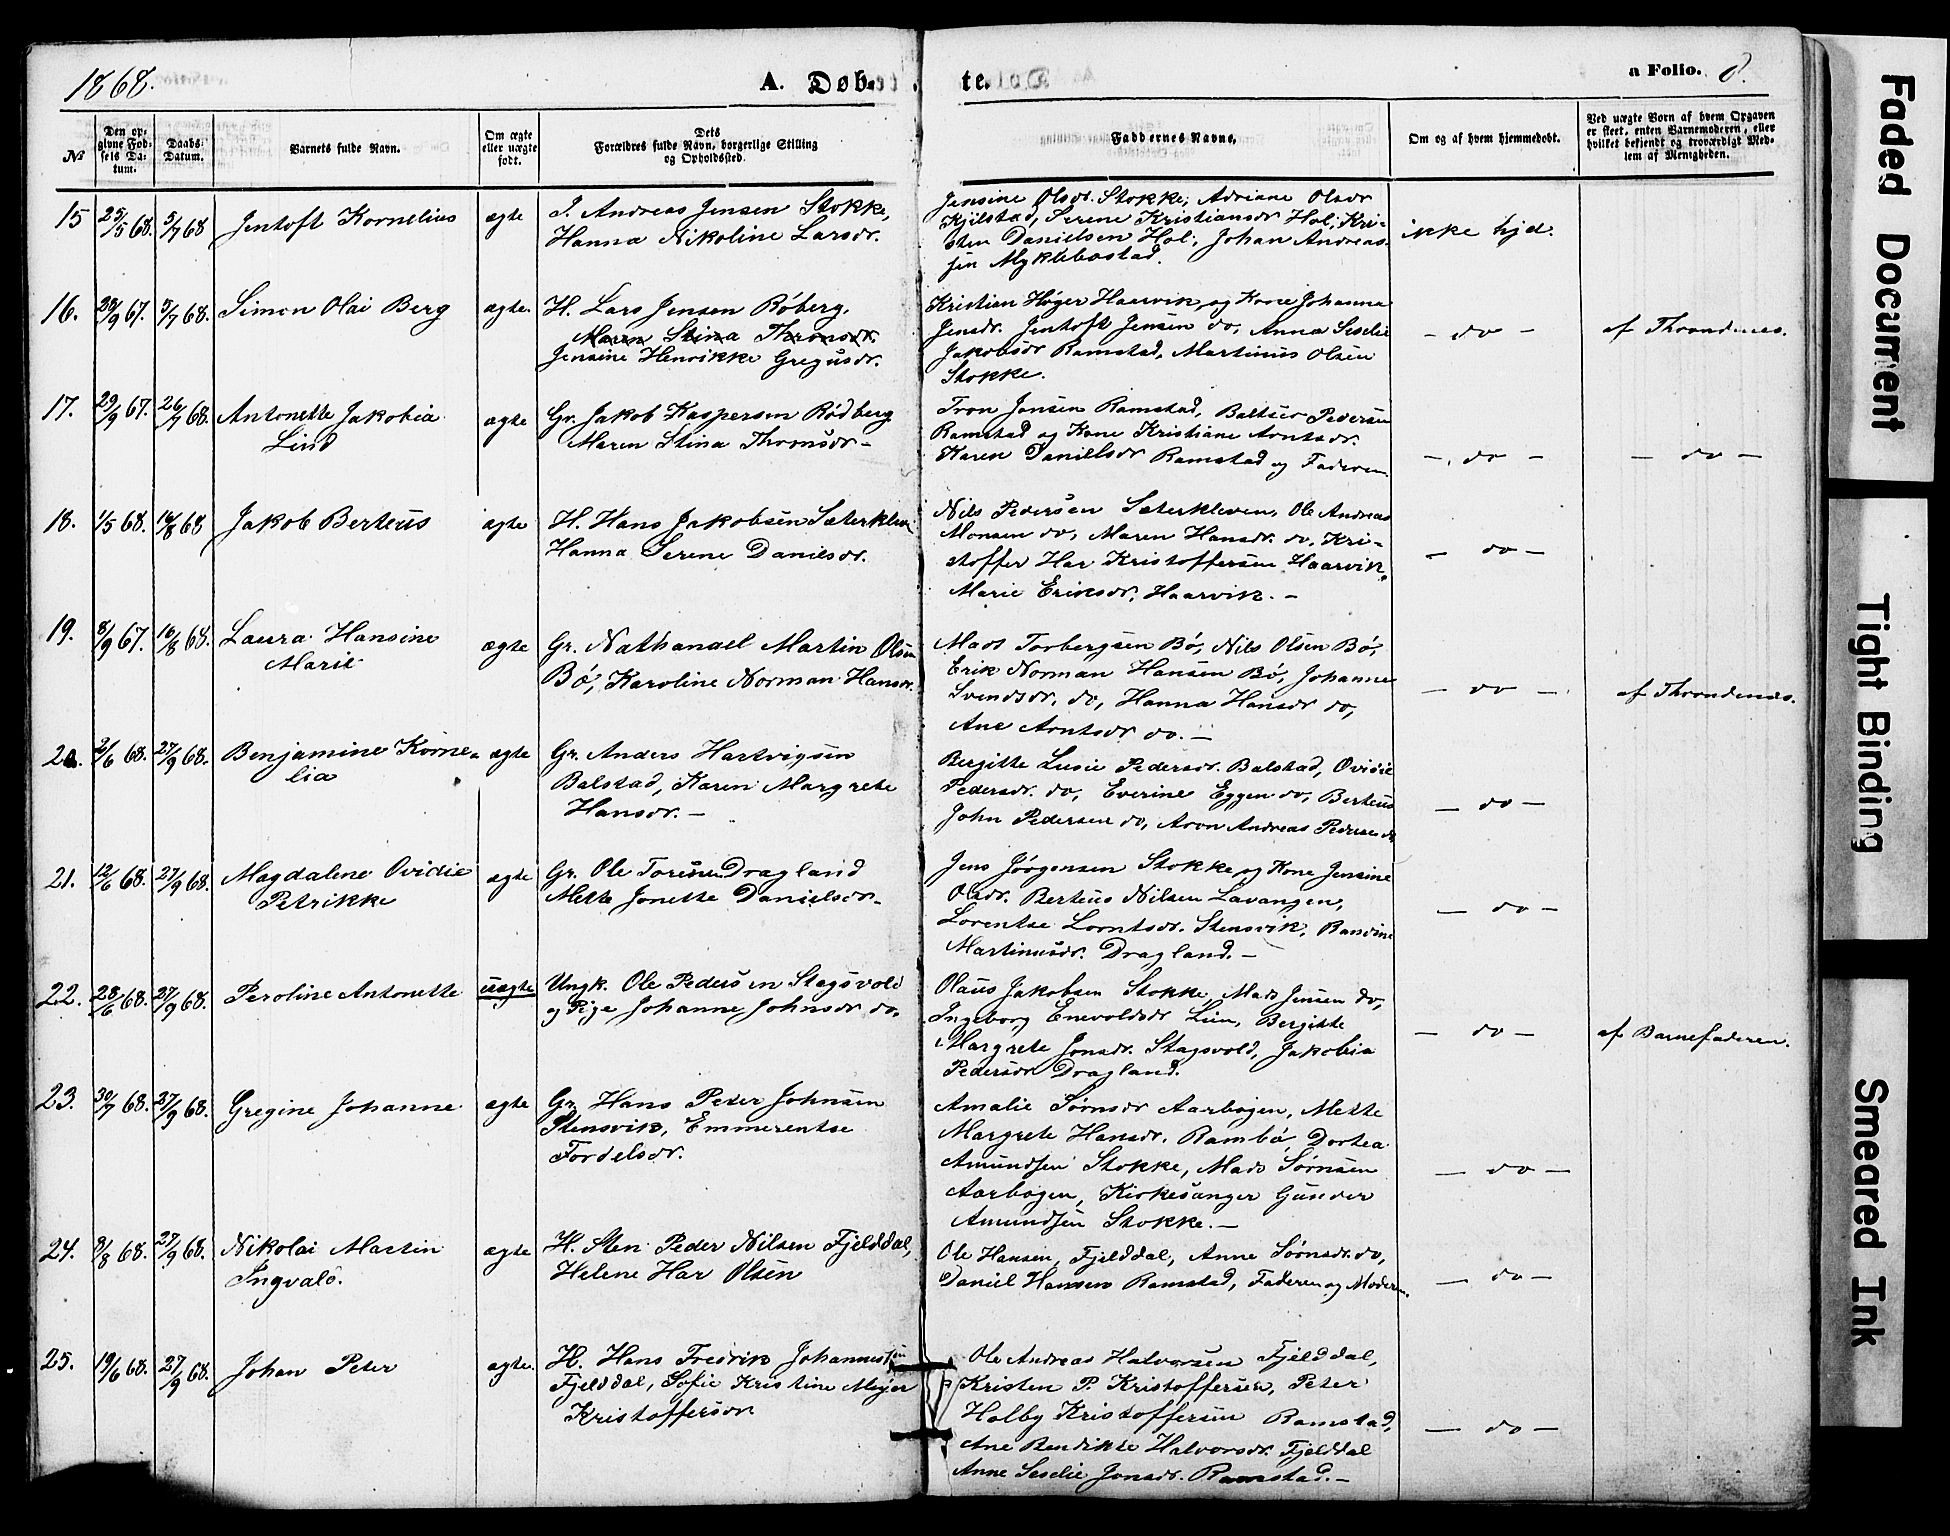 1868.
A. Døb-
te.
a Folio. 8.
№
Den op-
givne Fød-
sels Da-
tum.
Daabs-
Datum.
Barnets fulde Navn.
Om ægte
eller uægte
født.
Dets
Forældres fulde Navn, borgerlige Stilling
og Opholdssted.
Faddernes Navne.
Om og af hvem hjemmedøbt.
Ved uægte Børn af hvem Opgaven
er skeet, enten Barnemoderen, eller
hvilket bekjendt og troværdigt Med-
lem af Menigheden.
15 25/5 68. 5/7 68 Jentoft Kornelius ægte
I. Andreas Jensen Stokke,
Hanna Nikoline Larsdr.
Jensine Olsdr. Stokke, Adriane Olsdr
Kjilstad, Serene Kristiansdr Hol, Kri-
sten Danielsen Hol, Johan Andreas-
sen Myklebostad.
ikke hjd.
16. 9 67. 5/7 68. Simon Olai Berg ægte.
H. Lars Jensen Røberg,
Maren Stina Thronsdr.
Jensine Henrikke Gregusdr.
Kristian Høger Haarvik og Kone Johanna
Jensdr. Jentoft Jensen do, Anna Seselie
Jakobsdr Ramstad, Martinus Olsen
Stokke.
- do -
af Throndenæs.
17. 29/9 67. 26/7 68. Antonette Jakobia
Lind
ægte
Gr. Jakob Kaspersen Rødberg
Maren Stina Thronsdr -
Tron Jensen Ramstad, Baltser Pedersen
Ramstad og Kone Kristiane Arntsdr.
Karen Danielsdr Ramstad og Faderen
- do -
- do -
18. 1/5 68. 16/8 68 Jakob Berteus ægte
H. Hans Jakobsen Sæterklev
Hanna Serene Danielsdr.
Nils Pedersen Sæterkleven, Ole Andreas
Monsen do, Maren Hansdr. do, Kri-
stoffer Har Kristoffersen Haarvik,
Marie Eriksdr. Haarvik. -
- do -
19. 8/9 67. 16/8 68. Laura Hansine
Marie
ægte
Gr. Nathanael Martin Olsen
Bø, Karoline Norman Hansdr.
Mads Torbergsen Bø, Nils Olsen Bø,
Erik Norman Hansen Bø, Johanne
Svendsdr. do, Hanna Hansdr do,
Ane Arntsdr do. -
- do -
af Throndenæs.
20. 2/6 68. 27/9 68. Benjamine Korne-
lia
ægte
Gr. Anders Hartvigsen
Balstad, Karen Margrete
Hansdr. -
Bergitte Lusie Pedersdr. Balstad, Ovidie
Pedersdr. do, Everine Eggen do, Berteus
John Pedersen do, Aron Andreas Pedersen do
- do -
21. 12/6 68. 27/9 68. Magdalene Ovidie
Petrikke
ægte
Gr. Ole Toresen Dragland
Mette Jonette Danielsdr.
Jens Jørgensen Stokke og Kone Jensine
Olsdr. Berteus Nilsen Lavangen,
Lorentse Lorntsdr. Stensvik, Randine
Martinusdr. Dragland. -
- do -
22. 28/6 68. 27/9 68. Peroline Antonette uægte
Ungk. Ole Pedersen Stagsvold
og Pige Johanne Johnsdr do.
Olaus Jakobsen Stokke, Mads Jensen do,
Ingeborg Enevoldsdr Lien, Bergitte
Margrete Jonsdr. Stagsvold, Jakobia
Pedersdr Dragland.
- do -
af Barnefaderen.
23. 30/7 68. 27/9 68. Gregine Johanne ægte
Gr. Hans Peter Johnsen
Stensvik, Emmerentse
Fordelsdr.
Amalie Sørnsdr Aarbogen, Mette
Margrete Hansdr. Rambø, Dortea
Amundsen Stokke, Mads Sørnsen
Aarbogen, Kirkesanger Gunder
Amundsen Stokke. -
- do -
24. 8/8 68. 27/9 68. Nikolai Martin
Ingvald.
ægte
H. Sten Peder Nilsen Fjelddal,
Helene Har Olsen
Ole Hansen, Fjelddal, Anne Sørnsdr. do,
Daniel Hansen Ramstad, Faderen og Moderen.
- do -
25. 19/6 68. 27/9 68. Johan Peter ægte.
H. Hans Fredrik Johannessen
Fjelddal, Sofie Kristine Meyer
Kristoffersdr
Ole Andreas Halvorsen Fjelddal,
Kristen P. Kristoffersen, Peter
Holby Kristoffersen Ramstad,
Ane Bendikte Halvorsdr. Fjelddal
Anne Seselie Jonsdr. Ramstad. -
- do -
Faded Document
Tight Binding
Smeared Ink